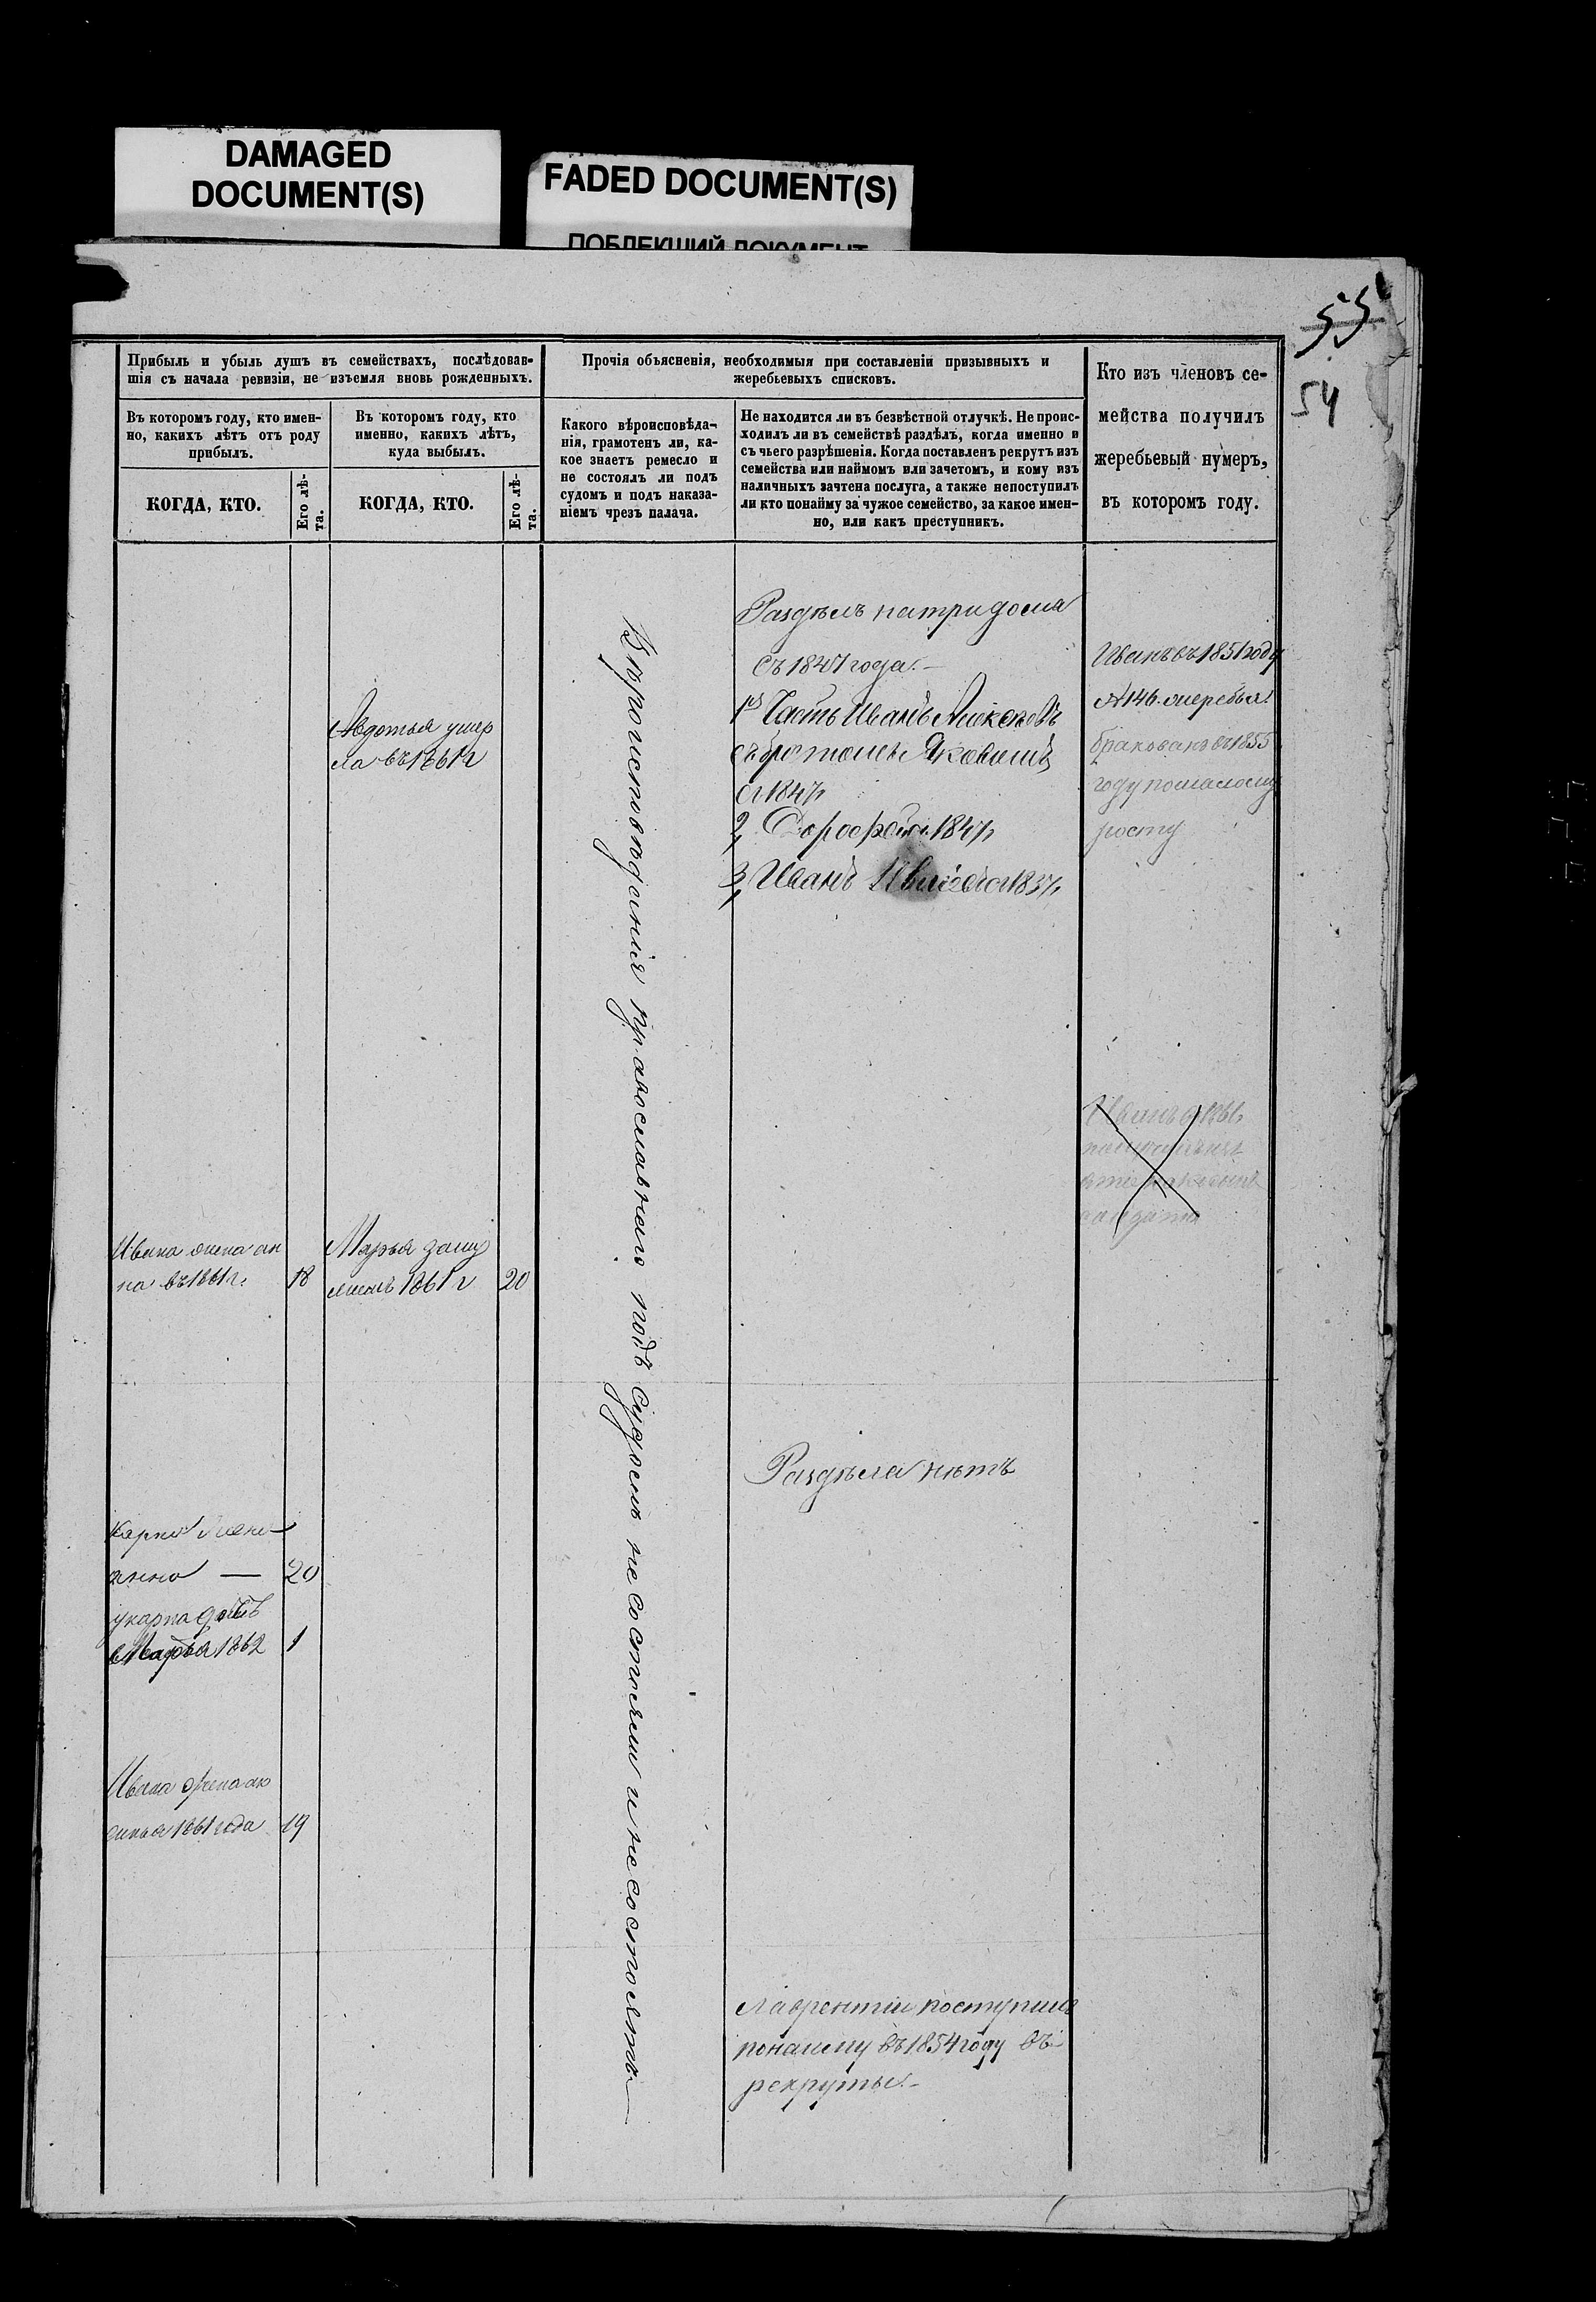 DAMAGED
DOCUMENT(S)
FADED DOCUMENT(S)
ПОБЛЕКШИЙ ДОКУМЕНТ
55
54
Прибыль и убыль душъ въ семействахъ, послѣдовав-
шія съ начала ревизіи, не изъемля вновь рожденныхъ.
Въ которомъ году, кто имен-
но, какихъ лѣтъ отъ роду
прибылъ.
КОГДА, КТО.
Его лѣ-
та.
Въ которомъ году, кто
именно, какихъ лѣтъ,
куда выбылъ.
КОГДА, КТО.
Его лѣ-
та.
Прочія объясненія, необходимыя при составленіи призывныхъ и
жеребьевыхъ списковъ.
Какого вѣроисповѣда-
нія, грамотенъ ли, ка-
кое знаетъ ремесло и
не состоялъ ли подъ
судомъ и подъ наказа-
ніемъ чрезъ палача.
Не находится ли въ безвѣстной отлучкѣ. Не проис-
ходилъ ли въ семействѣ раздѣлъ, когда именно и
съ чьего разрѣшенія. Когда поставленъ рекрутъ изъ
семейства или наймомъ или зачетомъ, и кому изъ
наличныхъ зачтена послуга, а также непоступилъ
ли кто понайму за чужое семейство, за какое имен-
но, или какъ преступникъ.
Кто изъ членовъ се-
мейства получилъ
жеребьевый нумеръ,
въ которомъ году.
Авдотья умер
ла въ 1861 г
Ивана жена ан
на въ 1861 г. 18
Марья заму
жемъ 1861 г 20
Карпа жена
анна — 20
укарпа дочь
Марья 1862 1
Ивана жена ак
синья 1861 года 19
Вѣроисповѣданія православнаго подъ судомъ не состояли и несостоятъ
Раздѣлъ натри дома
съ 1847 года.—
1я Часть Иванъ
съ братомъ Яковомъ
с 1847,
2, 1847,
3, Иванъ 1837,
Раздѣла нѣтъ
Лаврентий поступилъ
понайму въ 1854 году въ
рекруты.—
Иванъ въ 1851 году
№ 146. жеребья.
бракованъ въ 1855
году помалому
росту
Иванъ 1861,